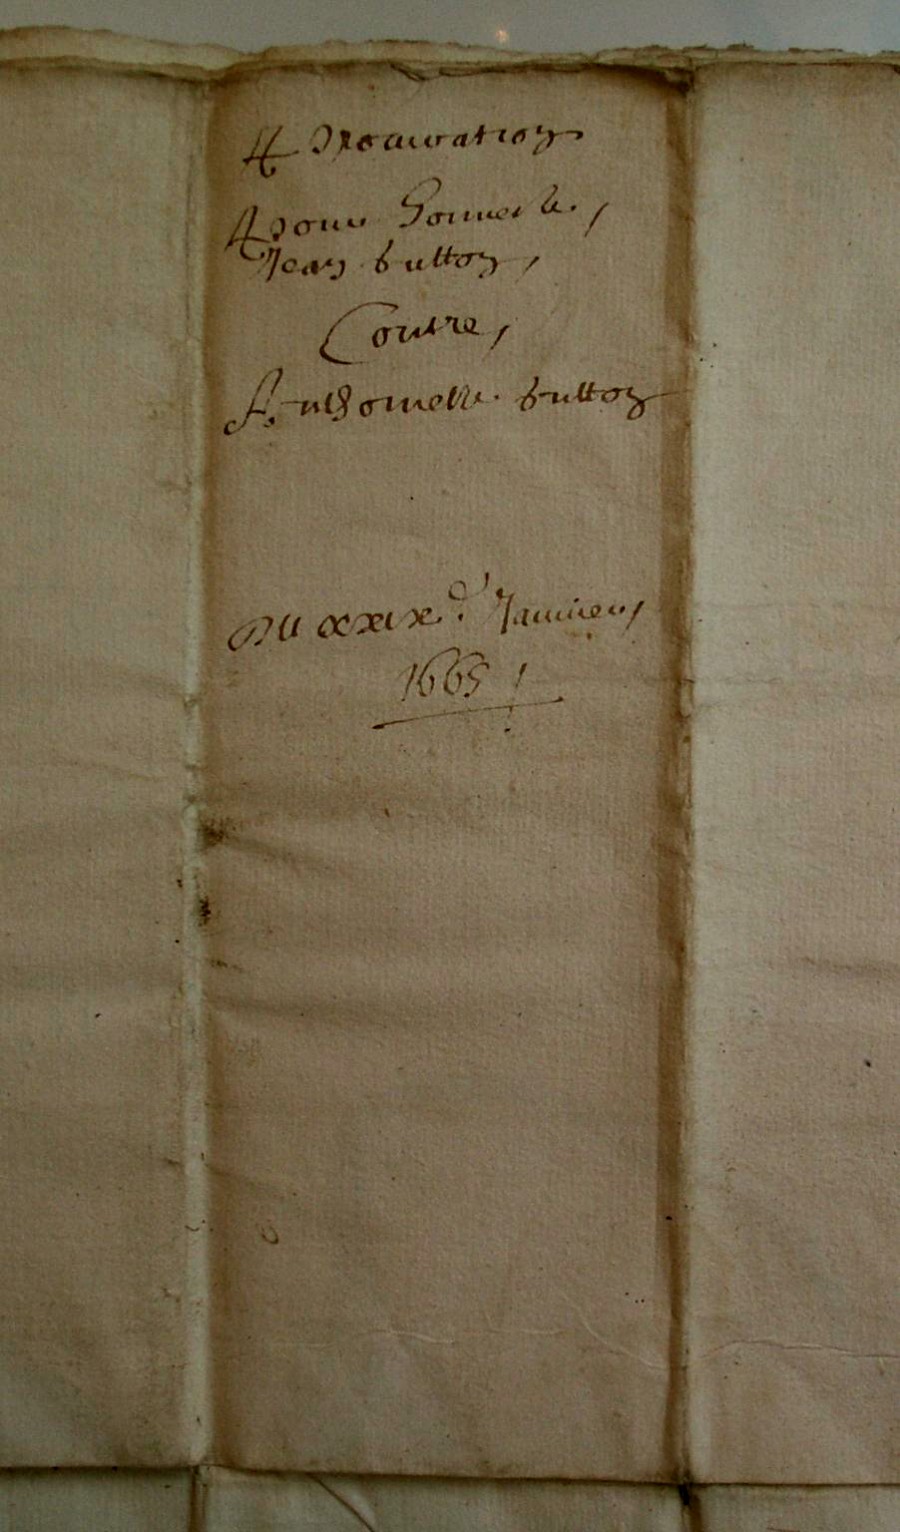 Procuration
Pour honneste,
Jean button,
Contre,
Anthoinette button
Du xxix.e Janvier,
1665,